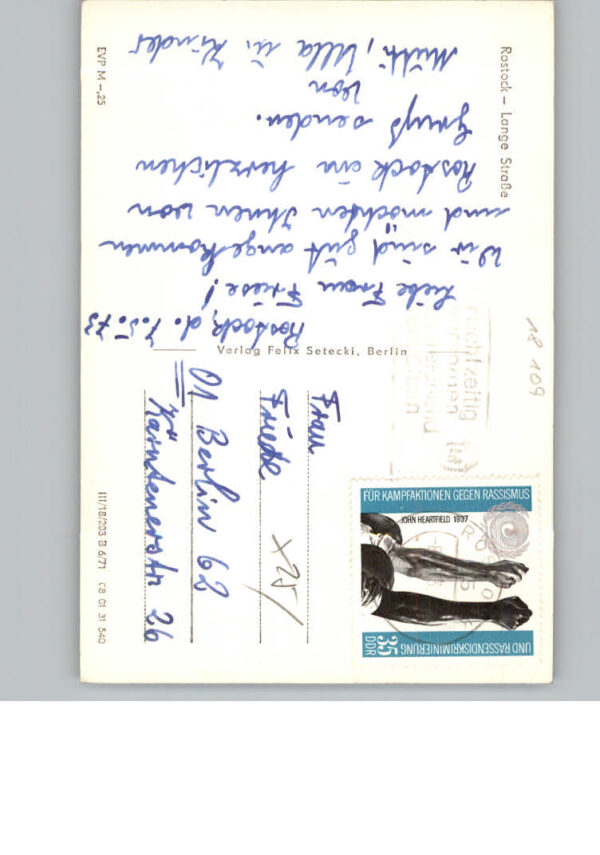 Rostock – Lange Straße
Rostock, d. 7.5.73
Liebe Frau Friese!
Wir sind gut angekommen
und möchten Ihnen von
Rostock ein herzlichen
Gruß senden.
von
Mutti, Ulla u. Kinder
EVP M –,25
Verlag Felix Setecki, Berlin
III/18/203 B 6/71 C8 01 31 540
Frau
Friese
01 Berlin 62
Kärntenerstr 26
18 109
x25/
rechtzeitig
FÜR KAMPFAKTIONEN GEGEN RASSISMUS
JOHN HEARTFIELD 1937
UND RASSENDISKRIMINIERUNG
35
DDR